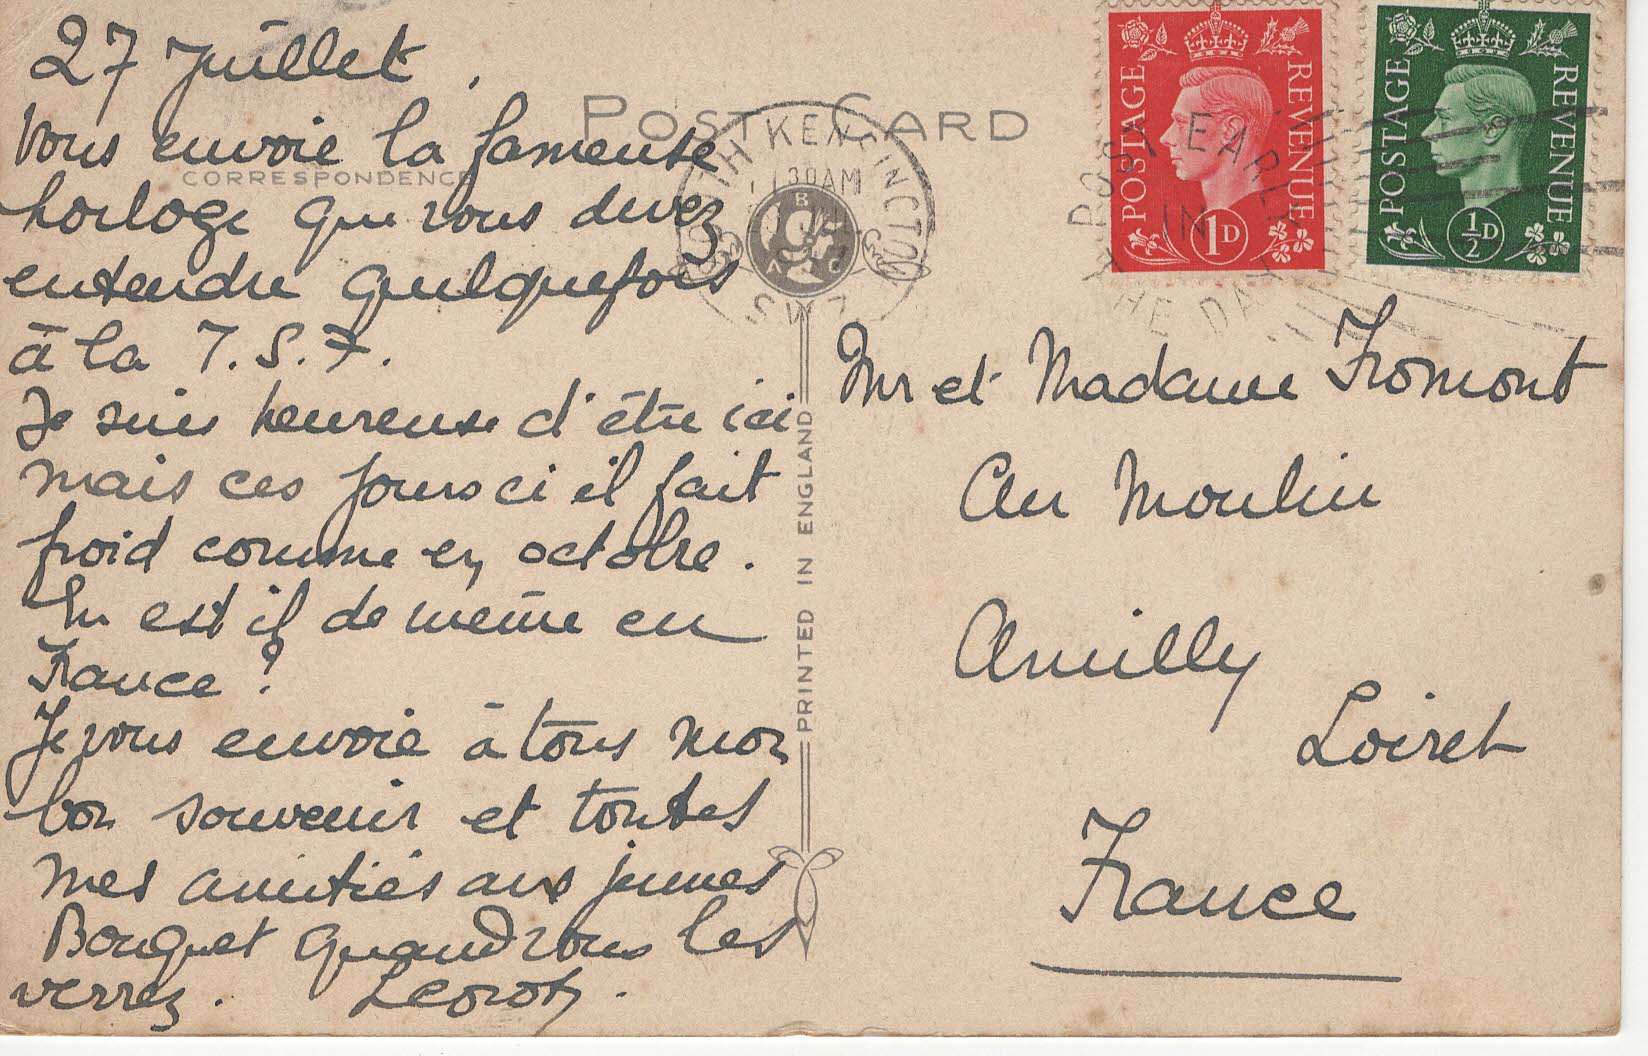 27 Juillet.
Vous envoie la fameuse
horloge que vous devez
entendre quelquefois
à la T.S.F.
Je suis heureuse d'être ici
mais ces jours ci il fait
froid comme en octobre.
En est il de même en
France ?
Je vous envoie à tous mon
bon souvenir et toutes
mes amitiés aux jeunes
Bouquet quand vous les
verrez.
POST CARD
CORRESPONDENCE
PRINTED IN ENGLAND
SOUTH KENSINGTON
11 30 AM
S.W.7
POST EARLY
IN
THE DAY
POSTAGE REVENUE
1D
POSTAGE REVENUE
½D
Mr et Madame Fromont
Au Moulin
Amilly
Loiret
France